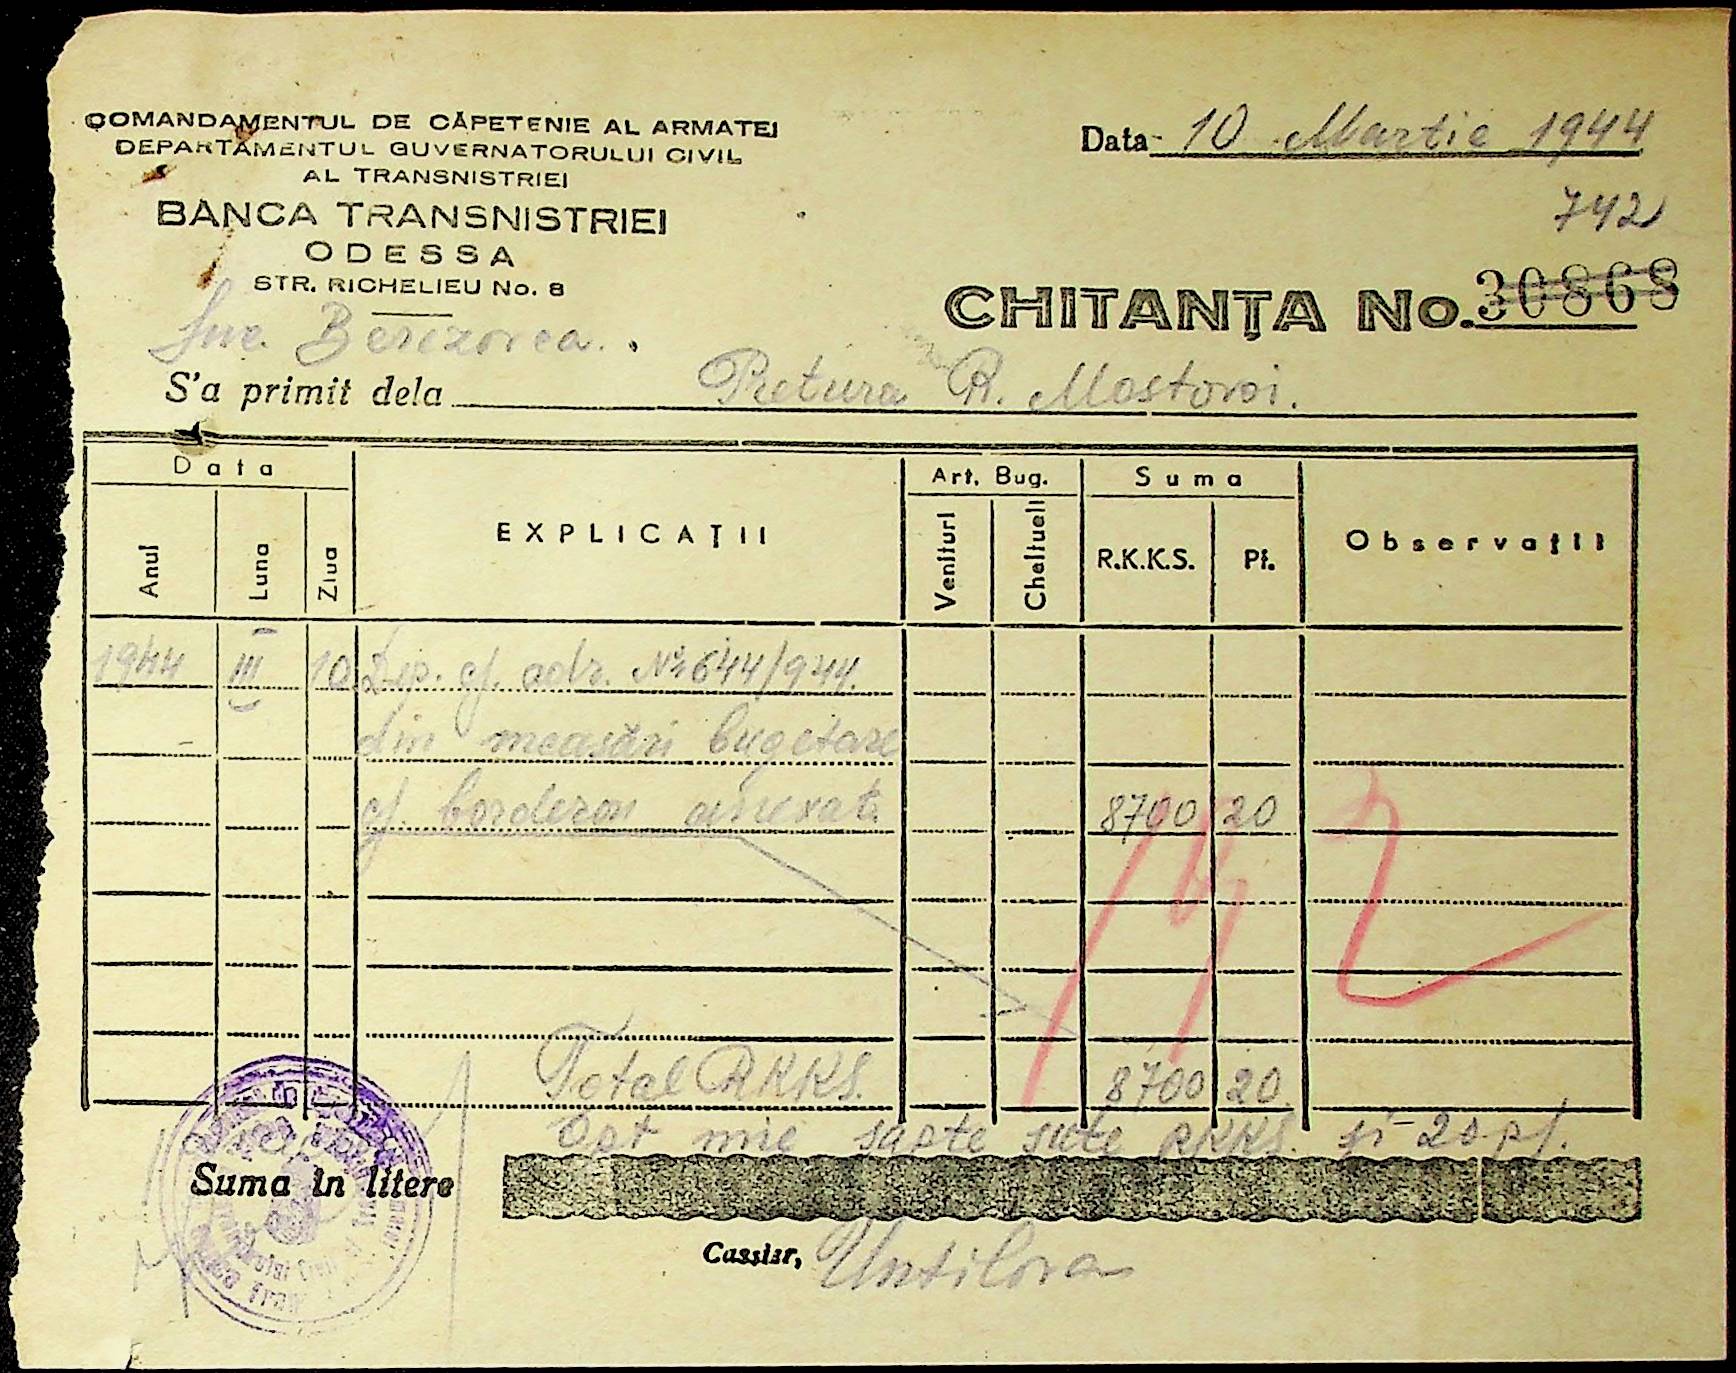 COMANDAMENTUL DE CĂPETENIE AL ARMATEI
DEPARTAMENTUL GUVERNATORULUI CIVIL
AL TRANSNISTRIEI
BANCA TRANSNISTRIEI
ODESSA
STR. RICHELIEU No. 8
Data 10 Martie 1944
742
CHITANȚA No. 30868
Suc. Berezovca.
S'a primit dela Pretura R. Mostovoi.
Data Art. Bug. Suma
Anul Luna Ziua EXPLICAȚII Venituri Cheltueli R.K.K.S. Pf. Observații
1944 III 10 Dep. cf. adr. № 644/944.
din încasări bugetare
cf. borderou anexată 8700 20
Total RKKS. 8700 20
Opt mie sapte sute RKKS. și 20 pf.
Suma în litere
Cassier, Untilova